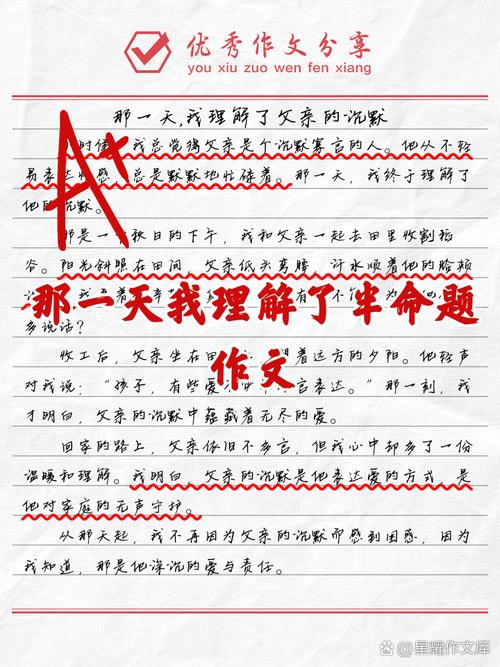 优秀作文分享
you xiu zuo wen fen xiang
那一天,我理解了父亲的沉默
时候,我总觉得父亲是个沉默寡言的人。他从不轻
易表达情感,总是默默地忙碌着。那一天,我终于理解了
他的沉默。
那是一个秋日的下午,我和父亲一起去田里收割稻
谷。阳光斜照在田间,父亲低头弯腰,汗水顺着他的脸颊
那一天我理解了半命题
多说话?
作文
收工后,父亲坐在田 着远方的夕阳。他轻声
对我说:“孩子,有些爱 言表达。”那一刻,我
才明白,父亲的沉默中蕴藏着无尽的爱。
回家的路上,父亲依旧不多言,但我心中却多了一份
温暖和理解。我明白,父亲的沉默是他表达爱的方式,是
他对家庭的无声守护。
从那天起,我不再因为父亲的沉默而感到困惑,因为
我知道,那是他深沉的爱与责任。
A+
@星耀作文库